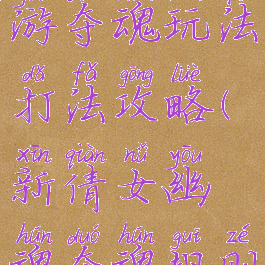 游夺魂玩法
dǎ fǎ gōng lüè
打法攻略(
xīn qiàn nǚ yōu
新倩女幽
hún duó hún guī zé
魂夺魂规则